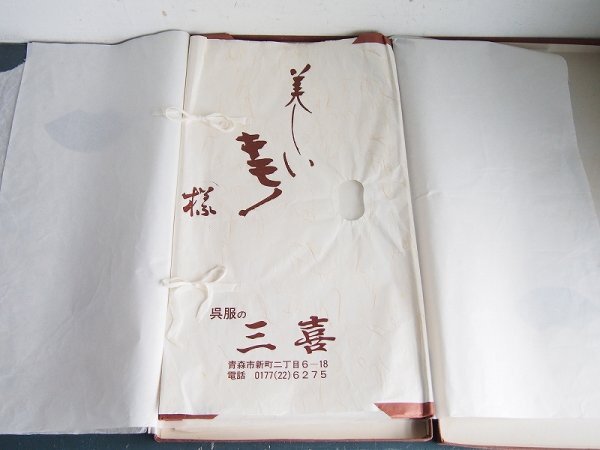 美しい
キモノ
様
呉服の
三喜
青森市新町二丁目6-18
電話 0177(22)6275